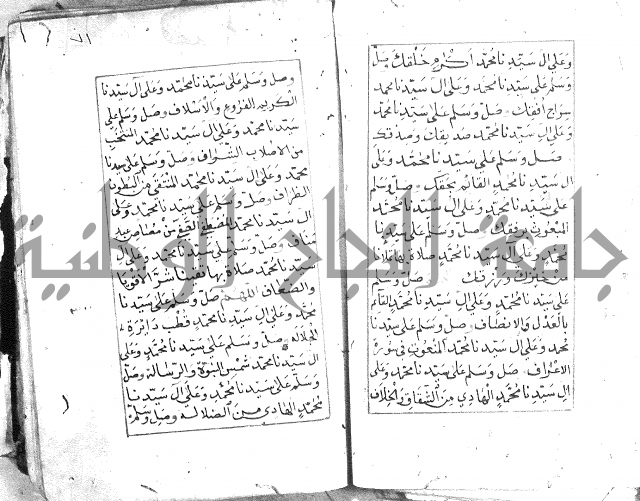 وعلى ال سيدنا محمد اكرم خلقك وصل
وسلم على سيدنا محمد وعلى ال سيدنا محمد
سراج افقك وصل وسلم على سيدنا محمد
وعلى ال سيدنا محمد صديقك وصدقك
وصل وسلم على سيدنا محمد وعلى
ال سيدنا محمد القائم بحقك وصل وسلم
على سيدنا محمد وعلى ال سيدنا محمد
المبعوث برفقك وصل وسلم على سيدنا
محمد وعلى ال سيدنا محمد صلاة
ورزقك وصل وسلم
على سيدنا محمد وعلى ال سيدنا محمد القائم
بالعدل والانصاف وصل وسلم على سيدنا
محمد وعلى ال سيدنا محمد المنعوت في سورة
الاعراف وصل وسلم على سيدنا محمد وعلى
ال سيدنا محمد الهادي من الشقاق والخلاف
وصل وسلم على سيدنا محمد وعلى ال سيدنا
الكريم الفروع والاسلاف وصل وسلم على
سيدنا محمد وعلى ال سيدنا محمد المنتخب
من الاصلاب الشراف وصل وسلم على سيدنا
محمد وعلى ال سيدنا محمد المنتقى من البطون
الظراف وصل وسلم على سيدنا محمد وعلى
ال سيدنا محمد المصطفى من
مناف وصل وسلم على سيدنا محمد وعلى ال
سيدنا محمد صلاة بها
والصحاف اللهم صل وسلم على سيدنا
محمد وعلى ال سيدنا محمد قطب دائرة
الجلالة وصل وسلم على سيدنا محمد وعلى
ال سيدنا محمد شمس النبوة والرسالة وصل
وسلم على سيدنا محمد وعلى ال سيدنا
محمد الهادي من الضلالة وصل وسلم
جامعة النجاح الوطنية